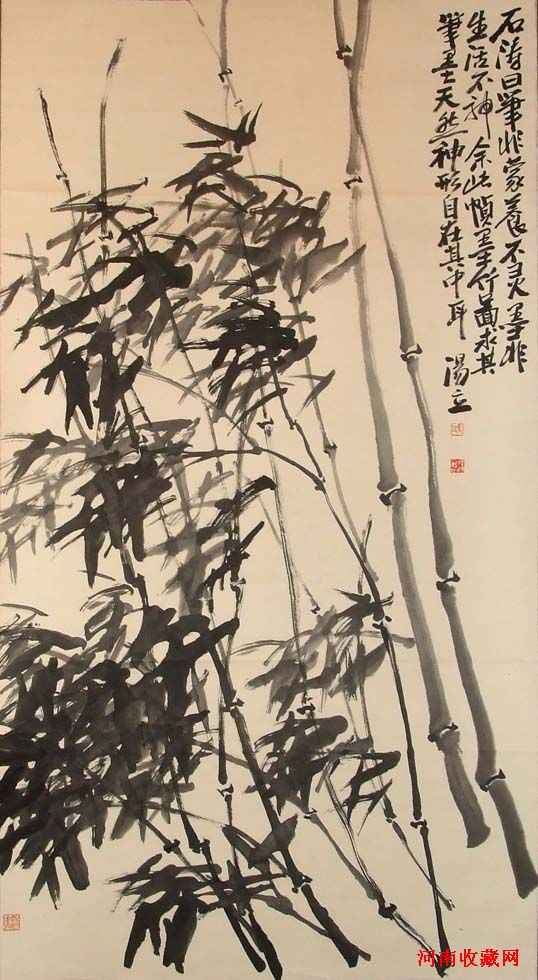 石涛曰笔非蒙养不灵墨非
生活不神 余此帧墨竹图求其
笔墨天然神形自在其中耳 汤立
河南收藏网